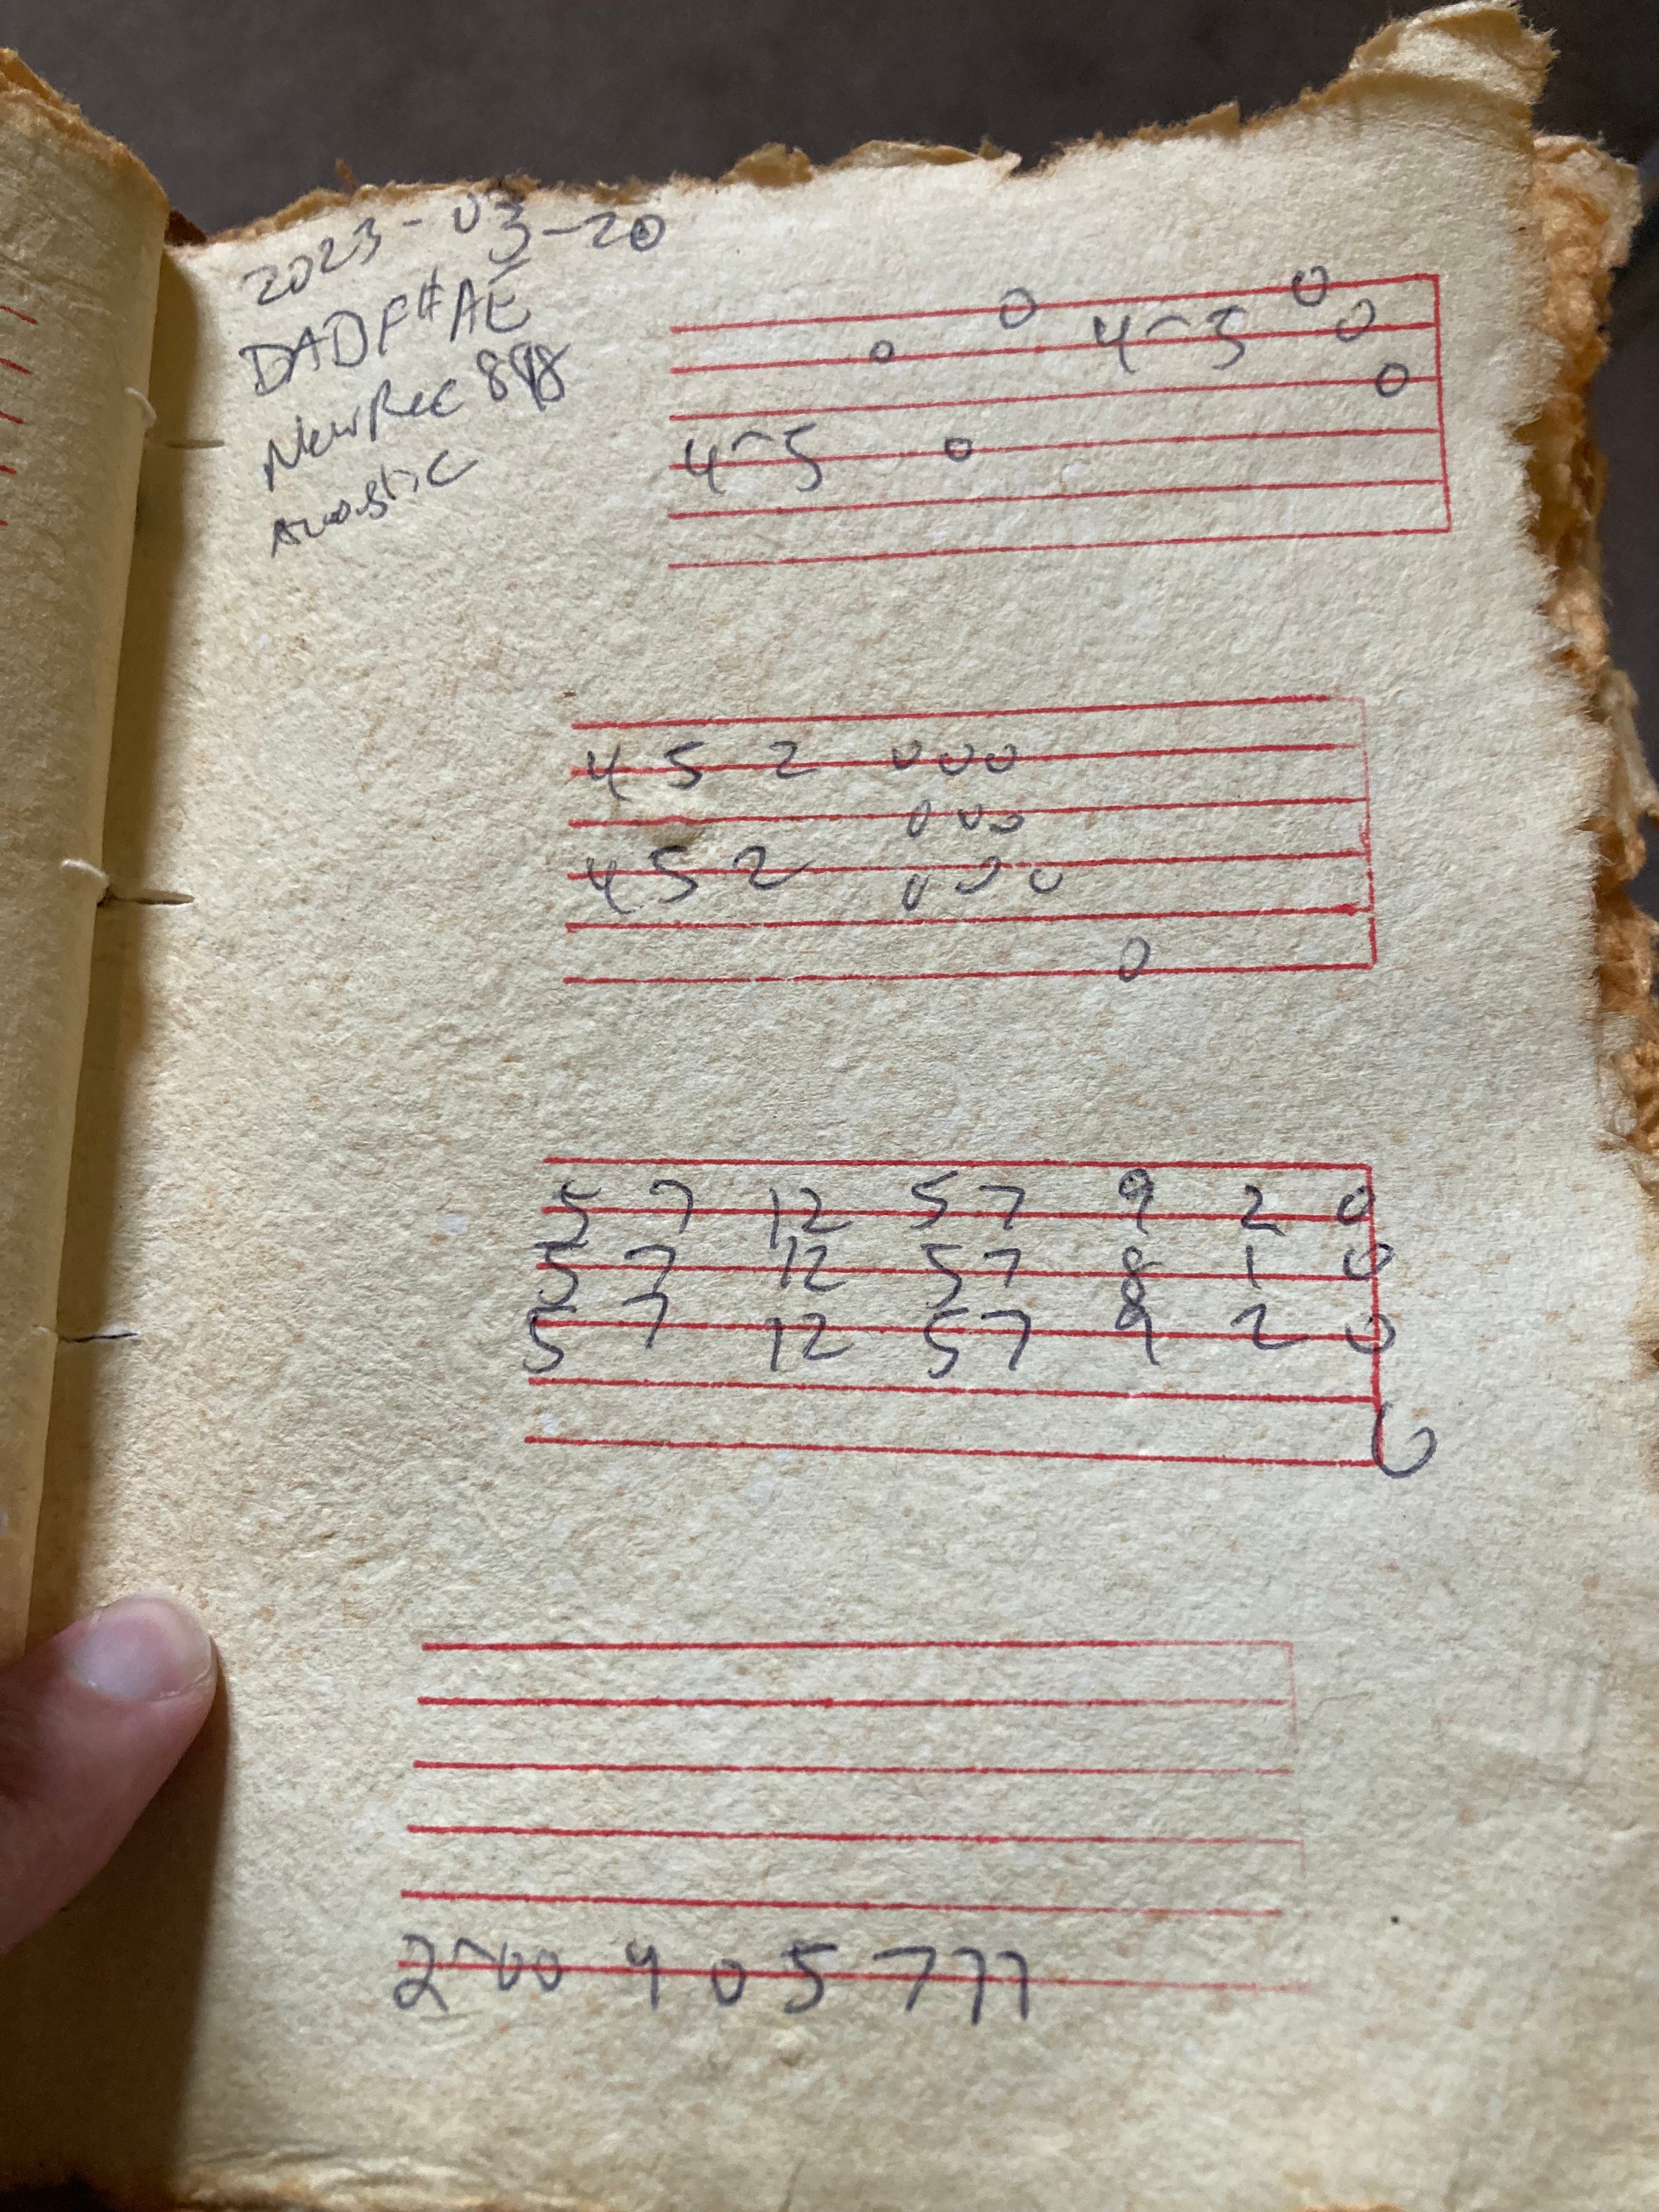 2023-03-20
DADF#AE
NewRec 898
Acoustic
0 0 4~5 0 0
0
4~5 0
4 5 2 0 0 0
0 0 0
4 5 2 0 0 0
0
5 7 12 5 7 9 2 0
5 7 12 5 7 8 1 0
5 7 12 5 7 9 2 0
0
2~00 4 0 5 7 7 7